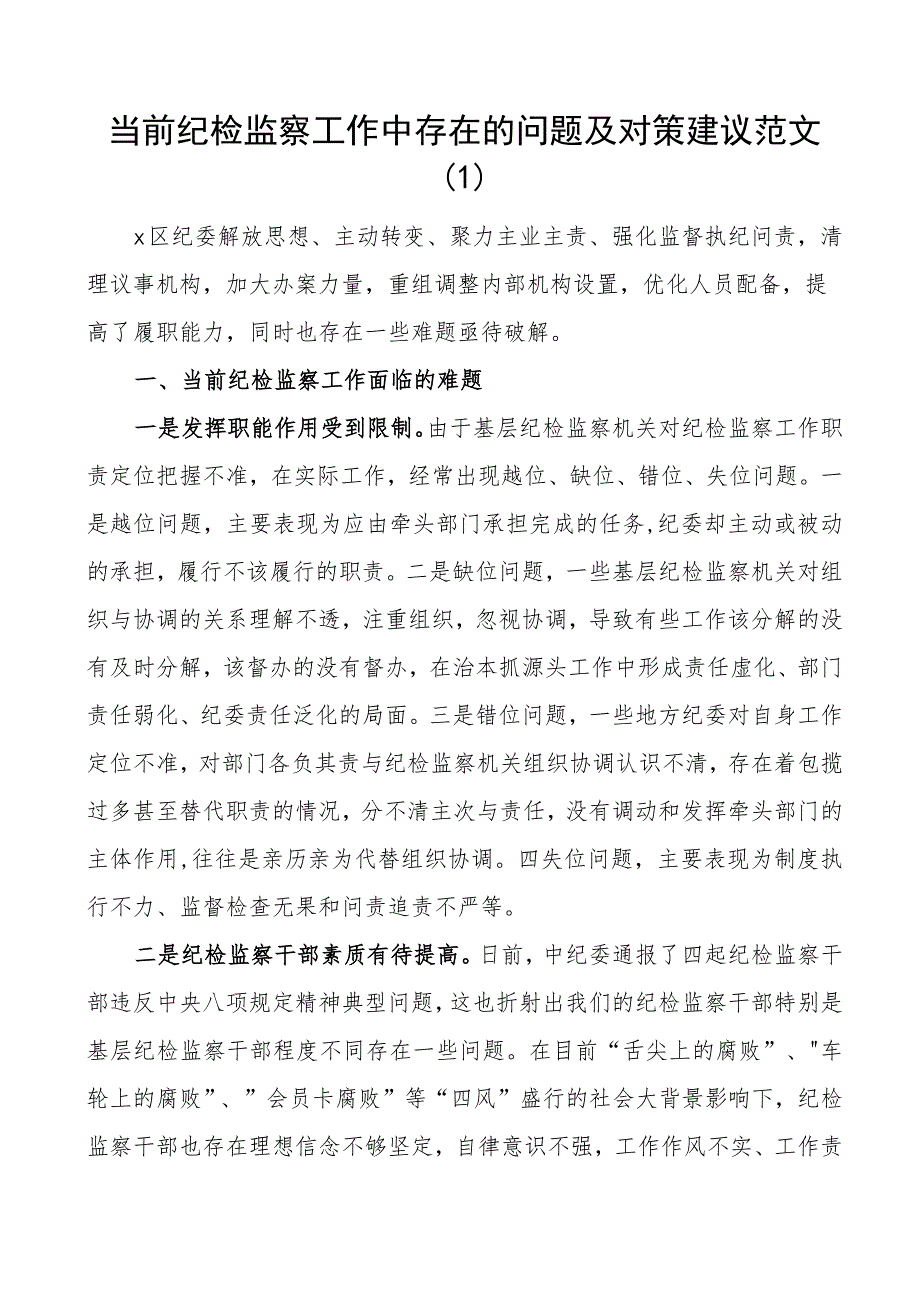 当前纪检监察工作中存在的问题及对策建议范文
(1)
x区纪委解放思想、主动转变、聚力主业主责、强化监督执纪问责，清
理议事机构，加大办案力量，重组调整内部机构设置，优化人员配备，提
高了履职能力，同时也存在一些难题亟待破解。
一、当前纪检监察工作面临的难题
一是发挥职能作用受到限制。由于基层纪检监察机关对纪检监察工作职
责定位把握不准，在实际工作，经常出现越位、缺位、错位、失位问题。一
是越位问题，主要表现为应由牵头部门承担完成的任务,纪委却主动或被动
的承担，履行不该履行的职责。二是缺位问题，一些基层纪检监察机关对组
织与协调的关系理解不透，注重组织，忽视协调，导致有些工作该分解的没
有及时分解，该督办的没有督办，在治本抓源头工作中形成责任虚化、部门
责任弱化、纪委责任泛化的局面。三是错位问题，一些地方纪委对自身工作
定位不准，对部门各负其责与纪检监察机关组织协调认识不清，存在着包揽
过多甚至替代职责的情况，分不清主次与责任，没有调动和发挥牵头部门的
主体作用,往往是亲历亲为代替组织协调。四失位问题，主要表现为制度执
行不力、监督检查无果和问责追责不严等。
二是纪检监察干部素质有待提高。日前，中纪委通报了四起纪检监察干
部违反中央八项规定精神典型问题，这也折射出我们的纪检监察干部特别是
基层纪检监察干部程度不同存在一些问题。在目前“舌尖上的腐败”、"车
轮上的腐败”、”会员卡腐败”等“四风”盛行的社会大背景影响下，纪检
监察干部也存在理想信念不够坚定，自律意识不强，工作作风不实、工作责